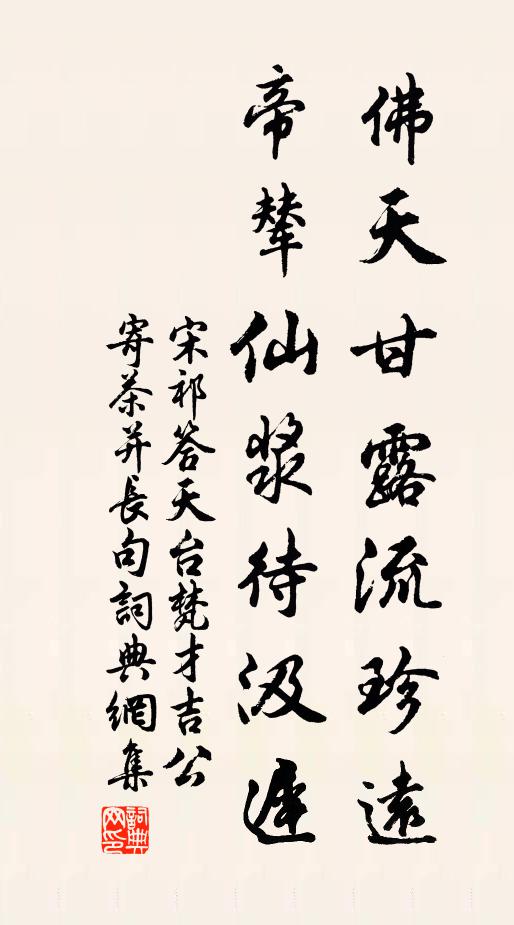 佛天甘露流珍遠
帝輦仙漿待汲遲
宋祁答天台梵才吉公
寄茶并長句詞典網集
詞典網印